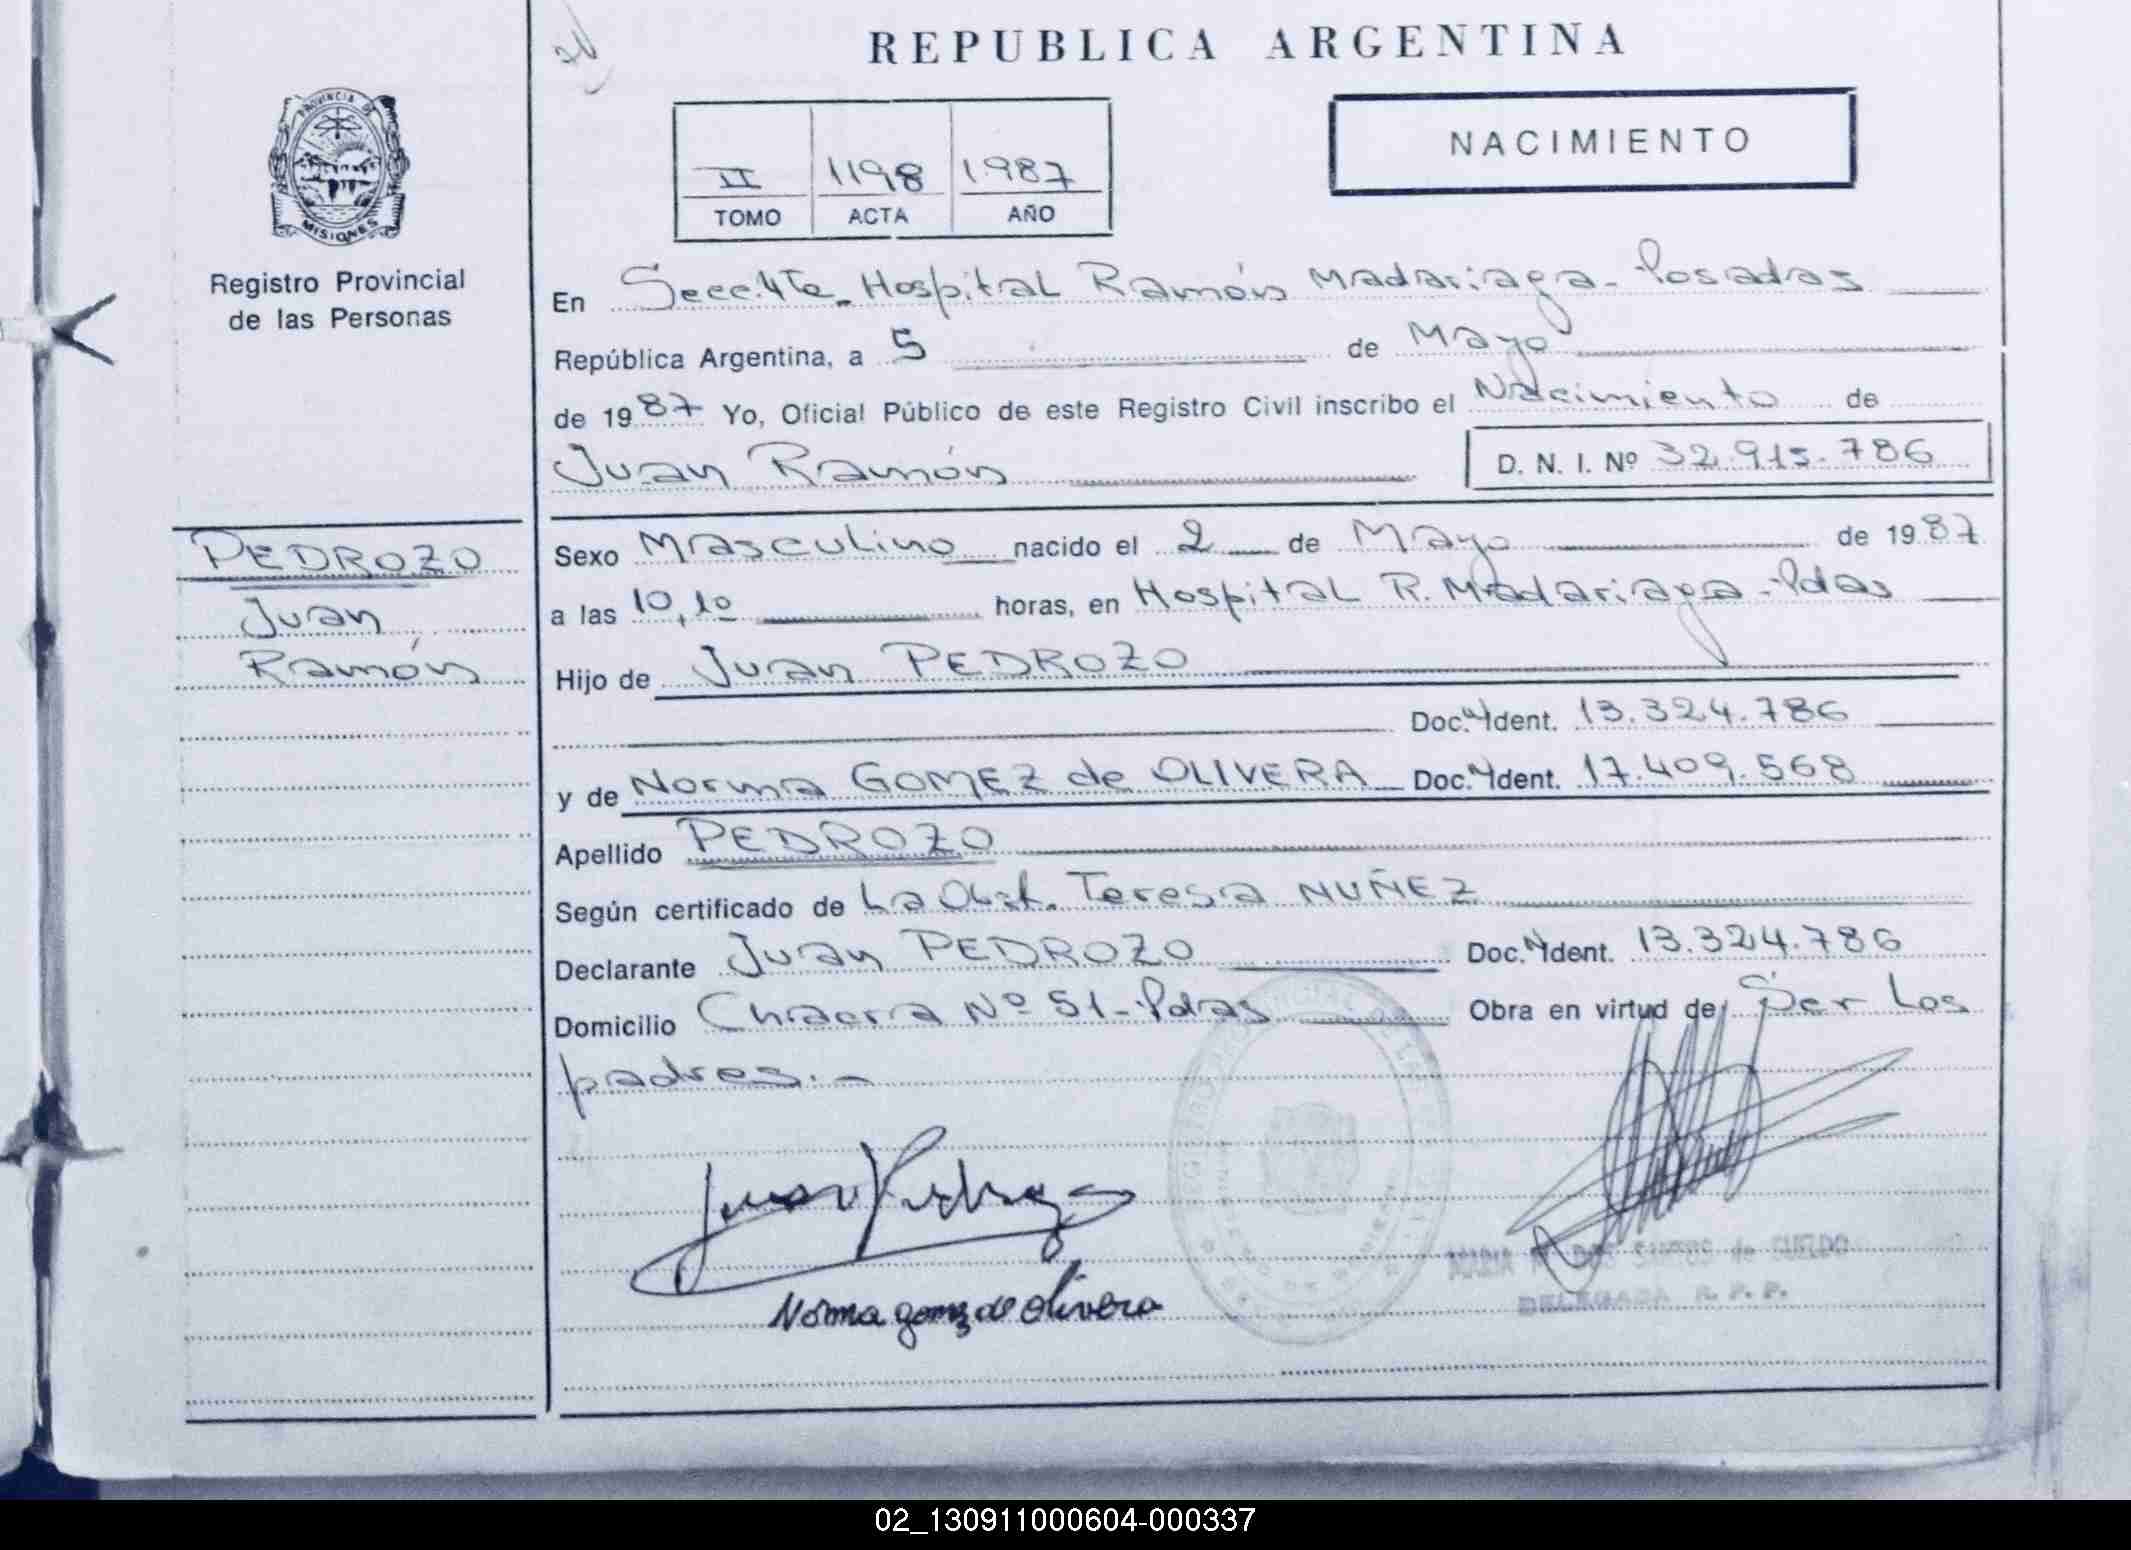 REPUBLICA ARGENTINA
PROVINCIA DE
MISIONES
Registro Provincial
de las Personas
II 1198 1987
TOMO ACTA AÑO
NACIMIENTO
En Secc. 4ta. Hospital Ramón Madariaga - Posadas
República Argentina, a 5 de Mayo
de 1987 Yo, Oficial Público de este Registro Civil inscribo el Nacimiento de
Juan Ramón D. N. I. Nº 32.915.786
PEDROZO
Juan
Ramón
Sexo Masculino nacido el 2 de Mayo de 1987
a las 10,10 horas, en Hospital R. Madariaga - Pdas
Hijo de Juan PEDROZO
Doc. Ident. 13.324.786
y de Norma GOMEZ de OLIVERA Doc. Ident. 17.409.568
Apellido PEDROZO
Según certificado de La Obst. Teresa NUÑEZ
Declarante Juan PEDROZO Doc. Ident. 13.324.786
Domicilio Chacra Nº 51 - Pdas Obra en virtud de Ser Los
padres. -
Juan Pedrozo
Norma gomz de olivera
DELEGADA R. P. P.
02_130911000604-000337